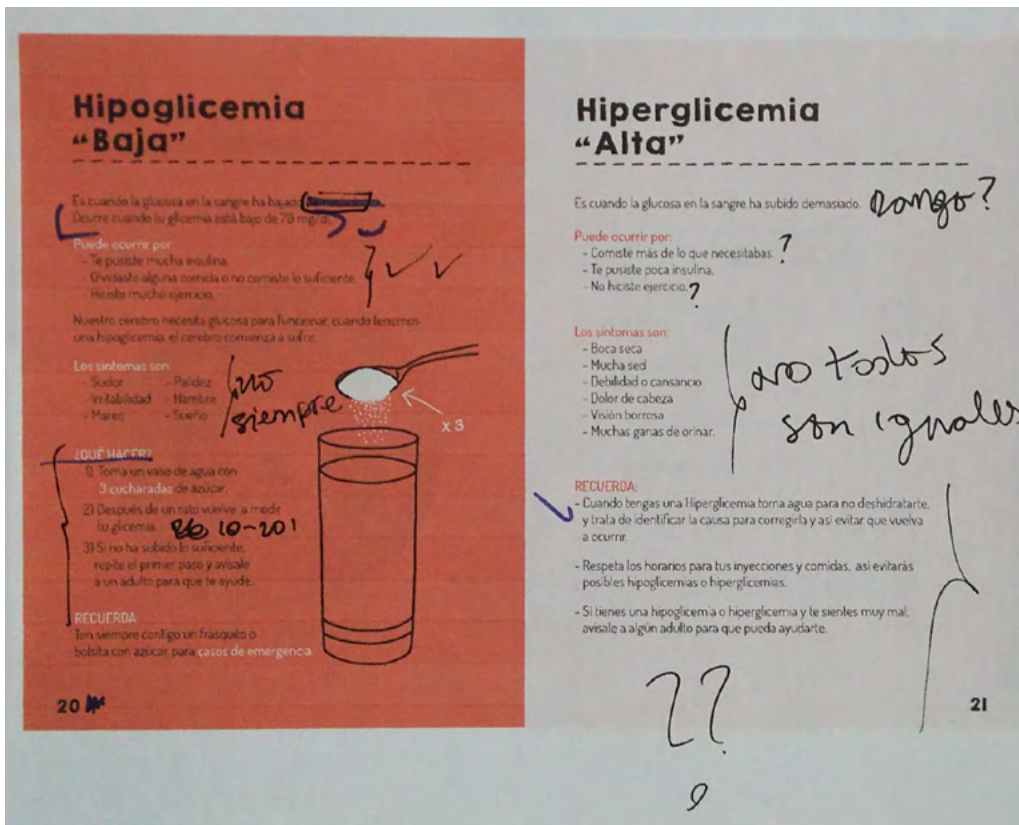 Hipoglicemia
“Baja”
Es cuando la glucosa en la sangre ha bajado
Ocurre cuando tu glicemia está bajo de 70 mg/dl.
Puede ocurrir por:
- Te pusiste mucha insulina.
- Olvidaste alguna comida o no comiste lo suficiente.
- Hiciste mucho ejercicio.
Nuestro cerebro necesita glucosa para funcionar, cuando tenemos
una hipoglicemia, el cerebro comienza a sufrir.
Los síntomas son:
- Sudor - Palidez
- Irritabilidad - Hambre
- Mareo - Sueño
no
siempre
x 3
¿QUÉ HACER?
1) Toma un vaso de agua con
3 cucharadas de azúcar.
2) Después de un rato vuelve a medir
tu glicemia. 10-20
3) Si no ha subido lo suficiente,
repite el primer paso y avísale
a un adulto para que te ayude.
RECUERDA
Ten siempre contigo un frasquito o
bolsita con azúcar para casos de emergencia.
20
Hiperglicemia
“Alta”
Es cuando la glucosa en la sangre ha subido demasiado. Rango?
Puede ocurrir por:
- Comiste más de lo que necesitabas. ?
- Te pusiste poca insulina.
- No hiciste ejercicio. ?
Los síntomas son:
- Boca seca
- Mucha sed
- Debilidad o cansancio
- Dolor de cabeza
- Visión borrosa
- Muchas ganas de orinar.
no todos
son iguales
RECUERDA:
- Cuando tengas una Hiperglicemia toma agua para no deshidratarte,
y trata de identificar la causa para corregirla y así evitar que vuelva
a ocurrir.
- Respeta los horarios para tus inyecciones y comidas, así evitarás
posibles hipoglicemias o hiperglicemias.
- Si tienes una hipoglicemia o hiperglicemia y te sientes muy mal,
avísale a algún adulto para que pueda ayudarte.
??
21